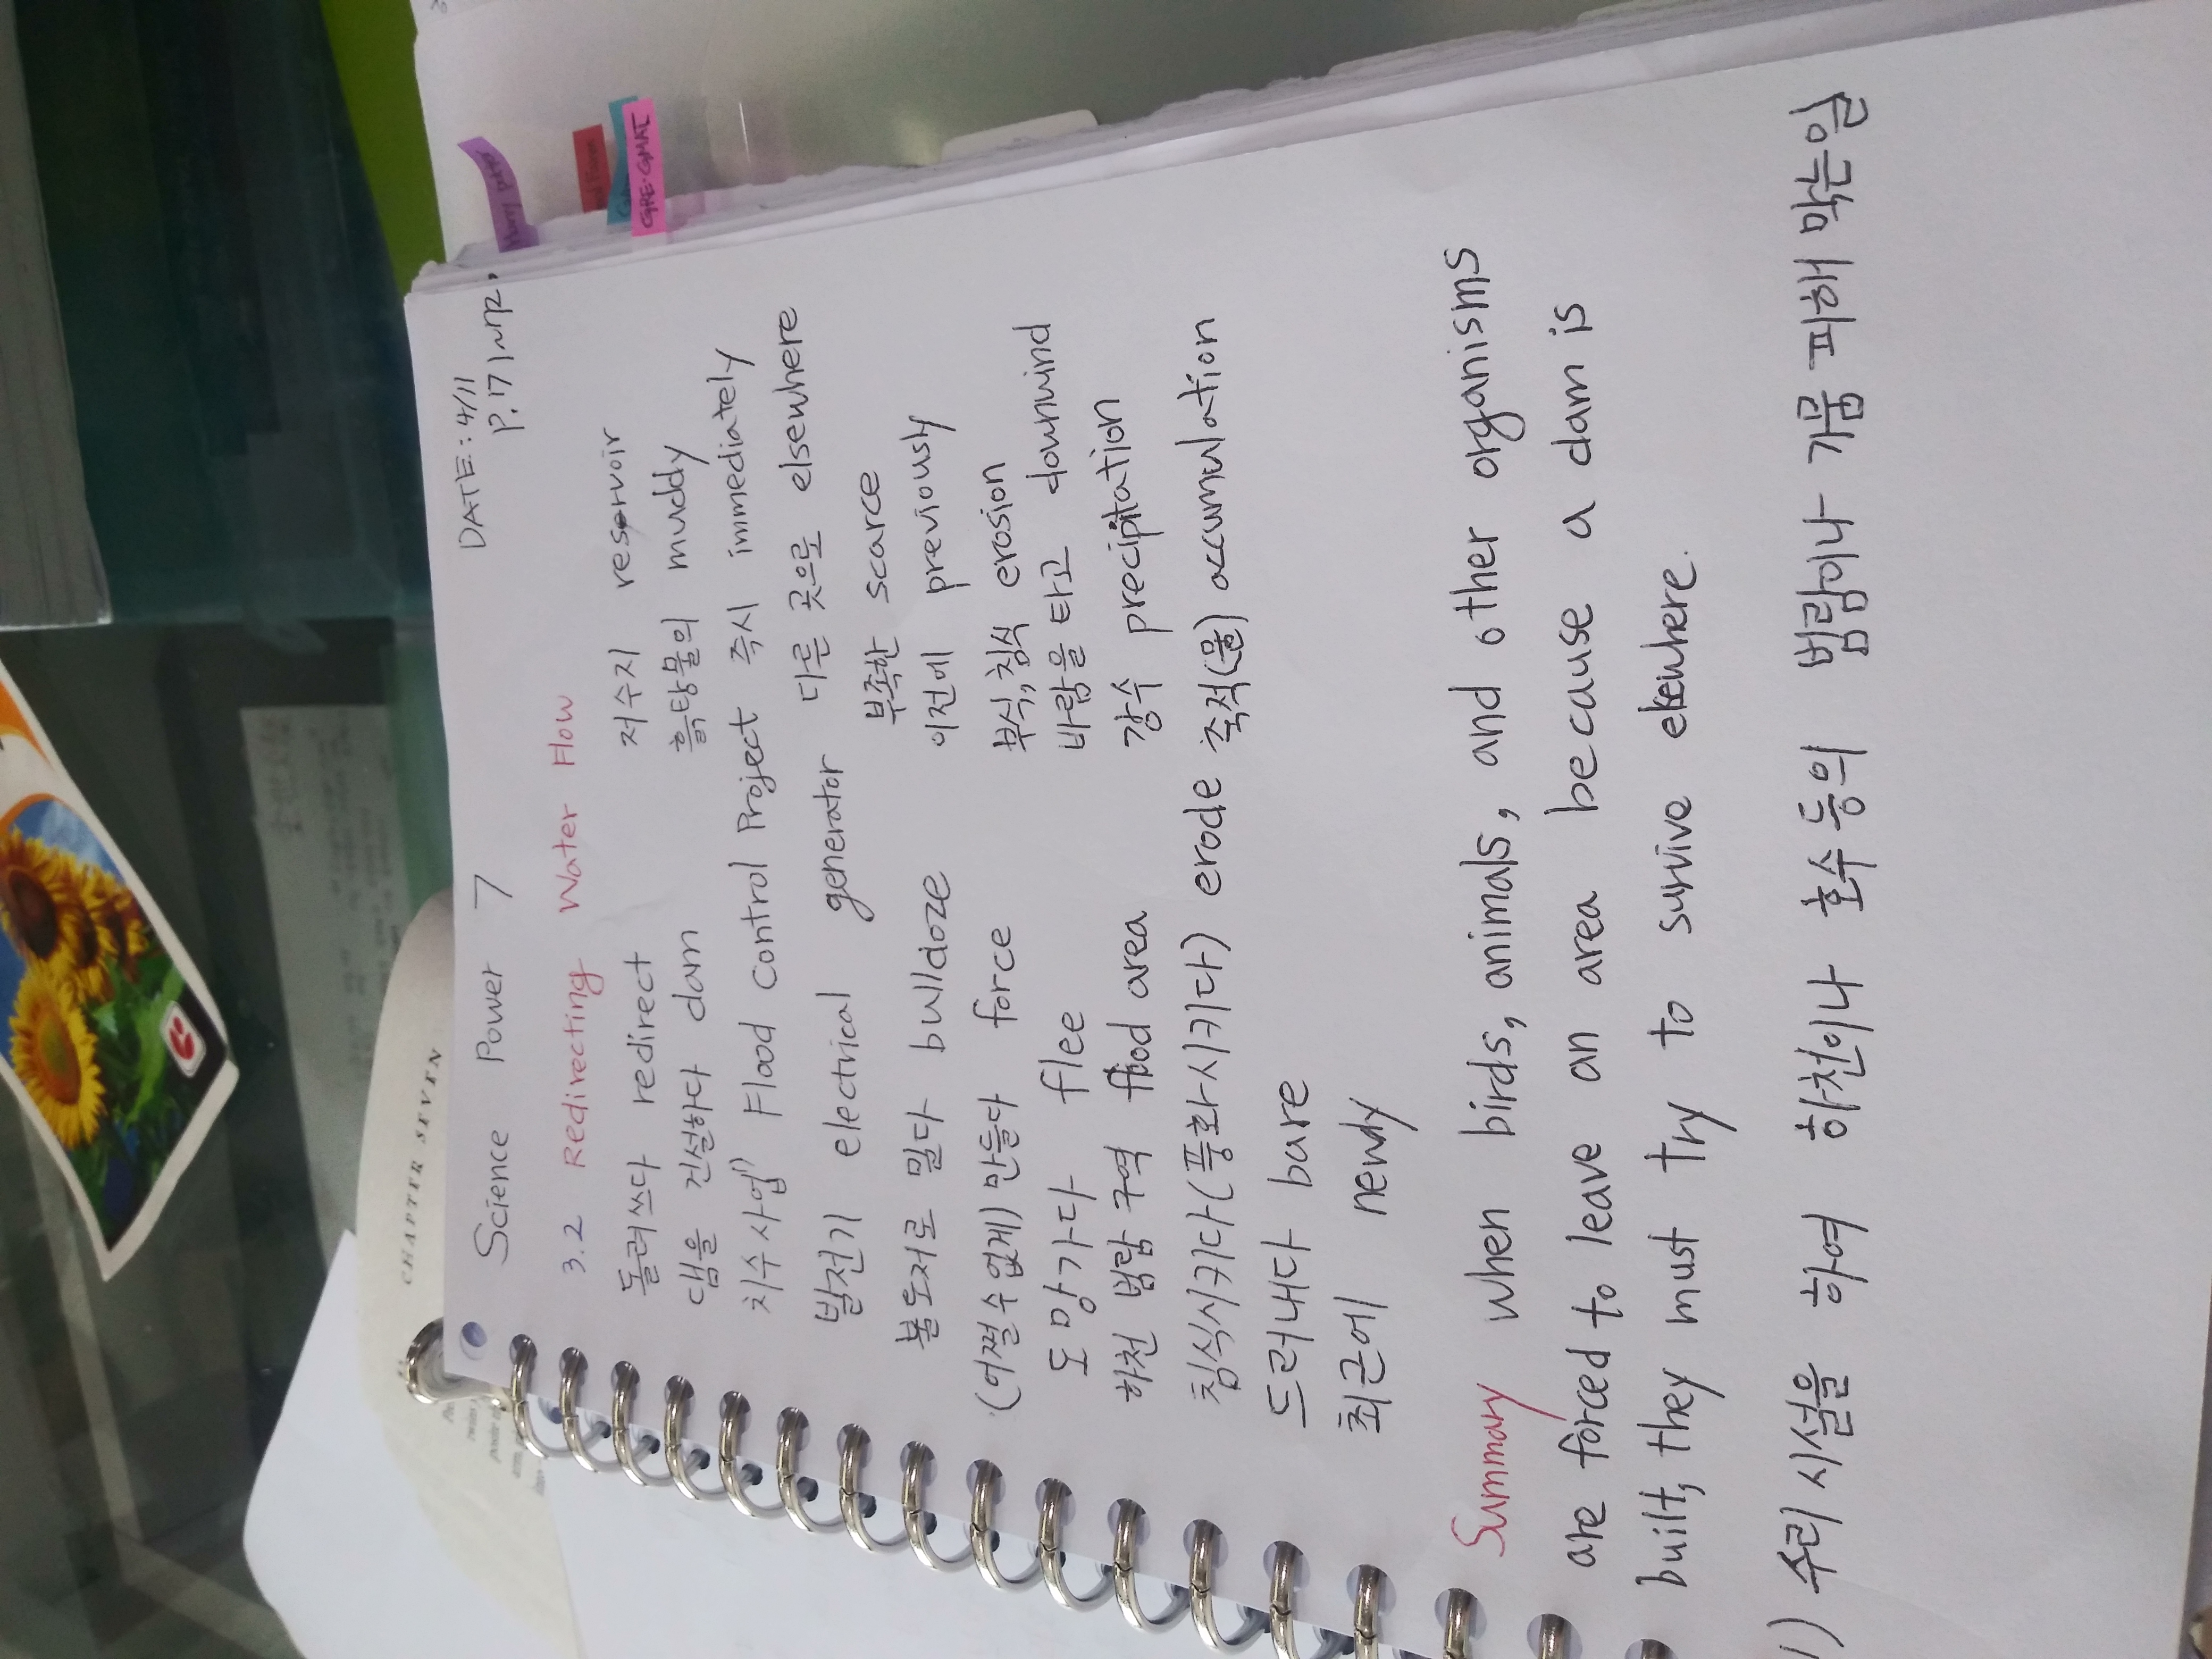 DATE: 4/11
Science Power 7 P. 171~172.
3.2 Redirecting Water Flow
돌려쓰다 redirect 저수지 reservoir
댐을 건설하다 dam 흙탕물의 muddy
치수사업¹⁾ Flood Control Project 즉시 immediately
발전기 electrical generator 다른 곳으로 elsewhere
불도저로 밀다 bulldoze 부족한 scarce
(어쩔수없게) 만들다 force 이전에 previously
도망가다 flee 부식,침식 erosion
하천 범람 구역 flood area 바람을 타고 downwind
침식시키다(풍화시키다) erode 강수 precipitation
드러내다 bare 축적(물) accumulation
최근에 newly
Summary when birds, animals, and other organisms
are forced to leave an area because a dam is
built, they must try to survive elsewhere.
1) 수리시설을 하여 하천이나 호수 등의 범람이나 가뭄 피해 막는일
CHAPTER SEVEN
GRE·GMAT